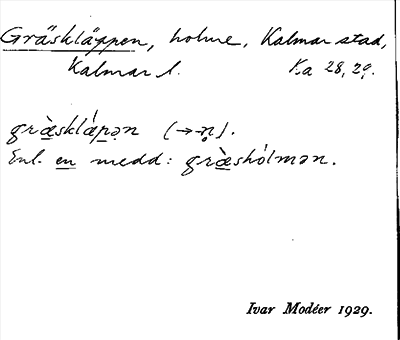 Gräskläppen, holme, Kalmar stad,
Kalmar l. Ka 28, 29.
græ̀sklǽpən (→ -n̥).
Enl. en medd: græ̀shólmən.
Ivar Modéer 1929.